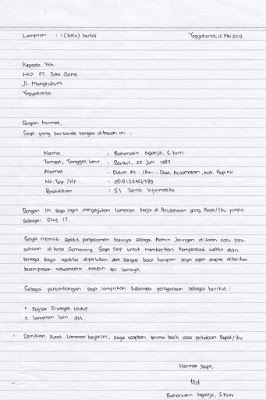 Lampiran : 1 (satu) berkas Yogyakarta, 12 Mei 2013
Kepada Yth.
HRD PT. Suka Game
Jl. Mangkubumi
Yogyakarta
Dengan hormat,
Saya yang bertanda tangan dibawah ini :
Nama : Baharudin S.Kom
Tempat, Tanggal Lahir : Bantul, 23 Juni 1987
Alamat : Dusun Rt. /Rw. , Desa, Kecamatan, Kab. Propinsi
No. Telp / Hp :
Pendidikan : S1 Teknik Informatika
Dengan ini saya ingin mengajukan lamaran kerja di Perusahaan yang Bapak/Ibu pimpin
sebagai Staf IT.
Saya memiliki sedikit pengalaman bekerja sebagai Admin Jaringan di salah satu peru-
sahaan di kota Semarang. Saya siap untuk memberikan kompensasi waktu dan
tenaga saya apabila diperlukan dan sangat besar harapan saya agar dapat diberikan
kesempatan wawancara maupun tes lainnya.
Sebagai pertimbangan saya lampirkan beberapa persyaratan sebagai berikut :
1. Daftar Riwayat Hidup
2. Lampiran lain dll.
Demikian surat lamaran kerja ini, saya ucapkan terima kasih atas perhatian Bapak/Ibu
Hormat Saya,
ttd
Baharudin S.Kom